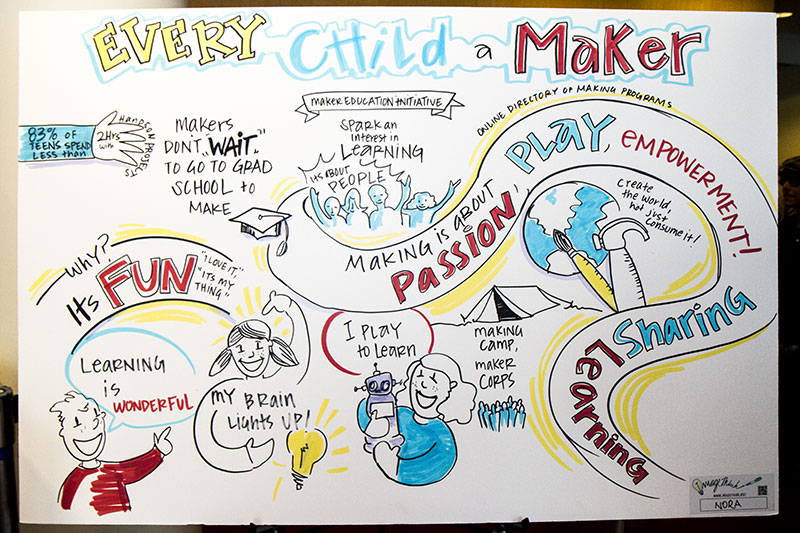 EVERY CHILd a MaKer
MakerEducationInitiative
ONLINE DIRECTORY OF MAKING PROGRAMS
83% OF
TEENS SPEND
LESS than
2Hrs
with
HANDSON PROJECTS
MAKERS
DONT "WAIT"
TO GO TO GRAD
SCHOOL to
MAKE
SPARK AN
INTEREST IN
LEARNING
ITS ABOUT
PEOPLE
MAKING IS ABOUT
PASSION,
PLAY,
EMPOWERMENT!
CREATE
the WORLD
not JUST
CONSUME it!
Sharing
Learning
WHY?
Its FUN
"I LOVE IT",
"ITS MY
THING"
LEARNING
is
WONDERFUL
MY BRAIN
LIGHTS UP!
I PLAY
to LEARN
MAKING
CAMP,
MAKER
CORPS
ImagiThink
NORA